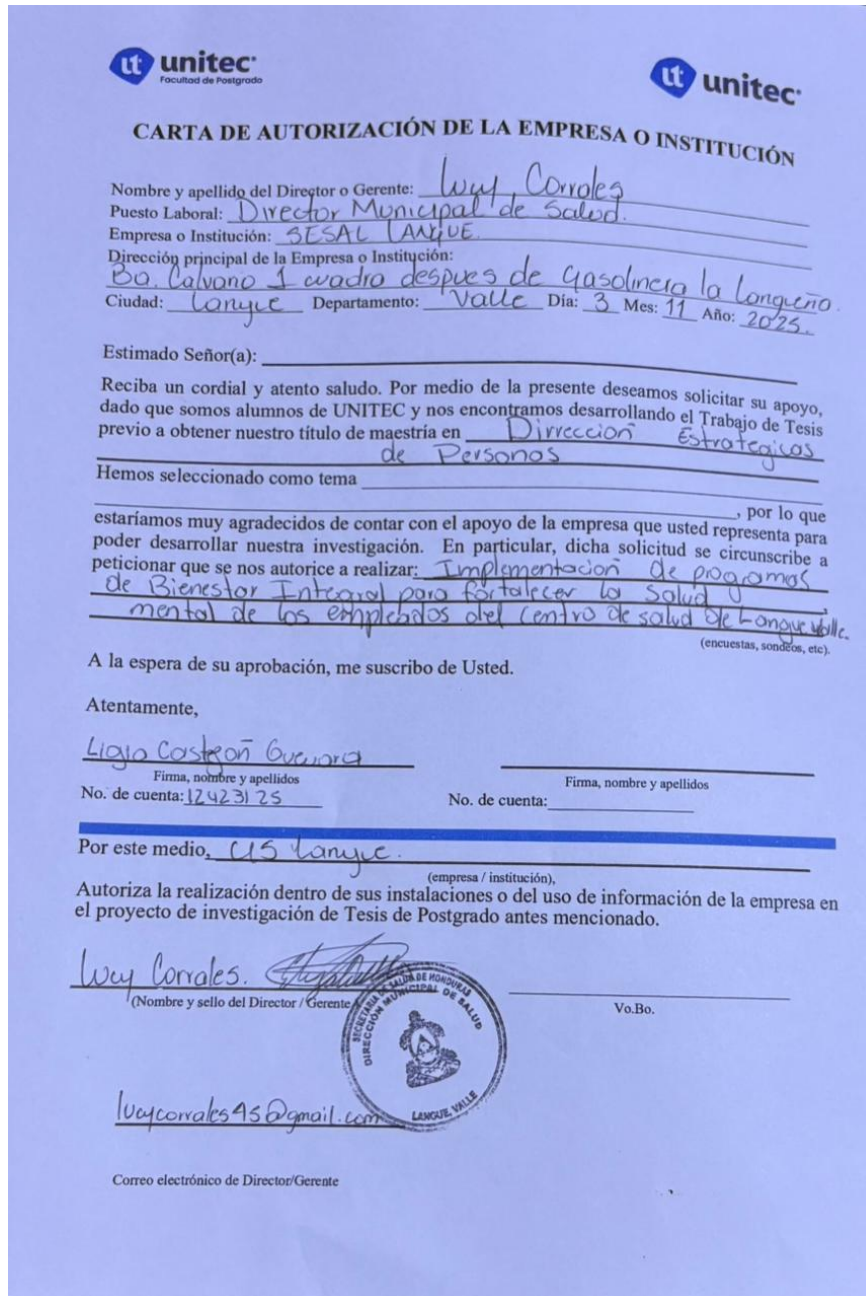 unitec
Facultad de Postgrado
unitec
CARTA DE AUTORIZACIÓN DE LA EMPRESA O INSTITUCIÓN
Nombre y apellido del Director o Gerente: Lucy Corrales
Puesto Laboral: Director Municipal de Salud.
Empresa o Institución: SESAL LANGUE.
Dirección principal de la Empresa o Institución:
Bo. Calvario 1 cuadra despues de Gasolinera la Langueña.
Ciudad: Langue Departamento: Valle Día: 3 Mes: 11 Año: 2025.
Estimado Señor(a):
Reciba un cordial y atento saludo. Por medio de la presente deseamos solicitar su apoyo,
dado que somos alumnos de UNITEC y nos encontramos desarrollando el Trabajo de Tesis
previo a obtener nuestro título de maestría en Dirreccion Estrategicas
de Personas
Hemos seleccionado como tema
, por lo que
estaríamos muy agradecidos de contar con el apoyo de la empresa que usted representa para
poder desarrollar nuestra investigación. En particular, dicha solicitud se circunscribe a
peticionar que se nos autorice a realizar: Implementacion de programas
de Bienestar Integral para fortalecer la Salud
mental de los empleados del Centro de salud de Langue Valle.
(encuestas, sondeos, etc).
A la espera de su aprobación, me suscribo de Usted.
Atentamente,
Ligia Castejon Guevara
Firma, nombre y apellidos
Firma, nombre y apellidos
No. de cuenta: 12423125
No. de cuenta:
Por este medio, CIS Langue.
(empresa / institución),
Autoriza la realización dentro de sus instalaciones o del uso de información de la empresa en
el proyecto de investigación de Tesis de Postgrado antes mencionado.
Lucy Corrales.
(Nombre y sello del Director / Gerente
Vo.Bo.
SECRETARIA DE SALUD DE HONDURAS
DIRECCIÓN MUNICIPAL DE SALUD
LANGUE, VALLE
lucycorrales45@gmail.com
Correo electrónico de Director/Gerente